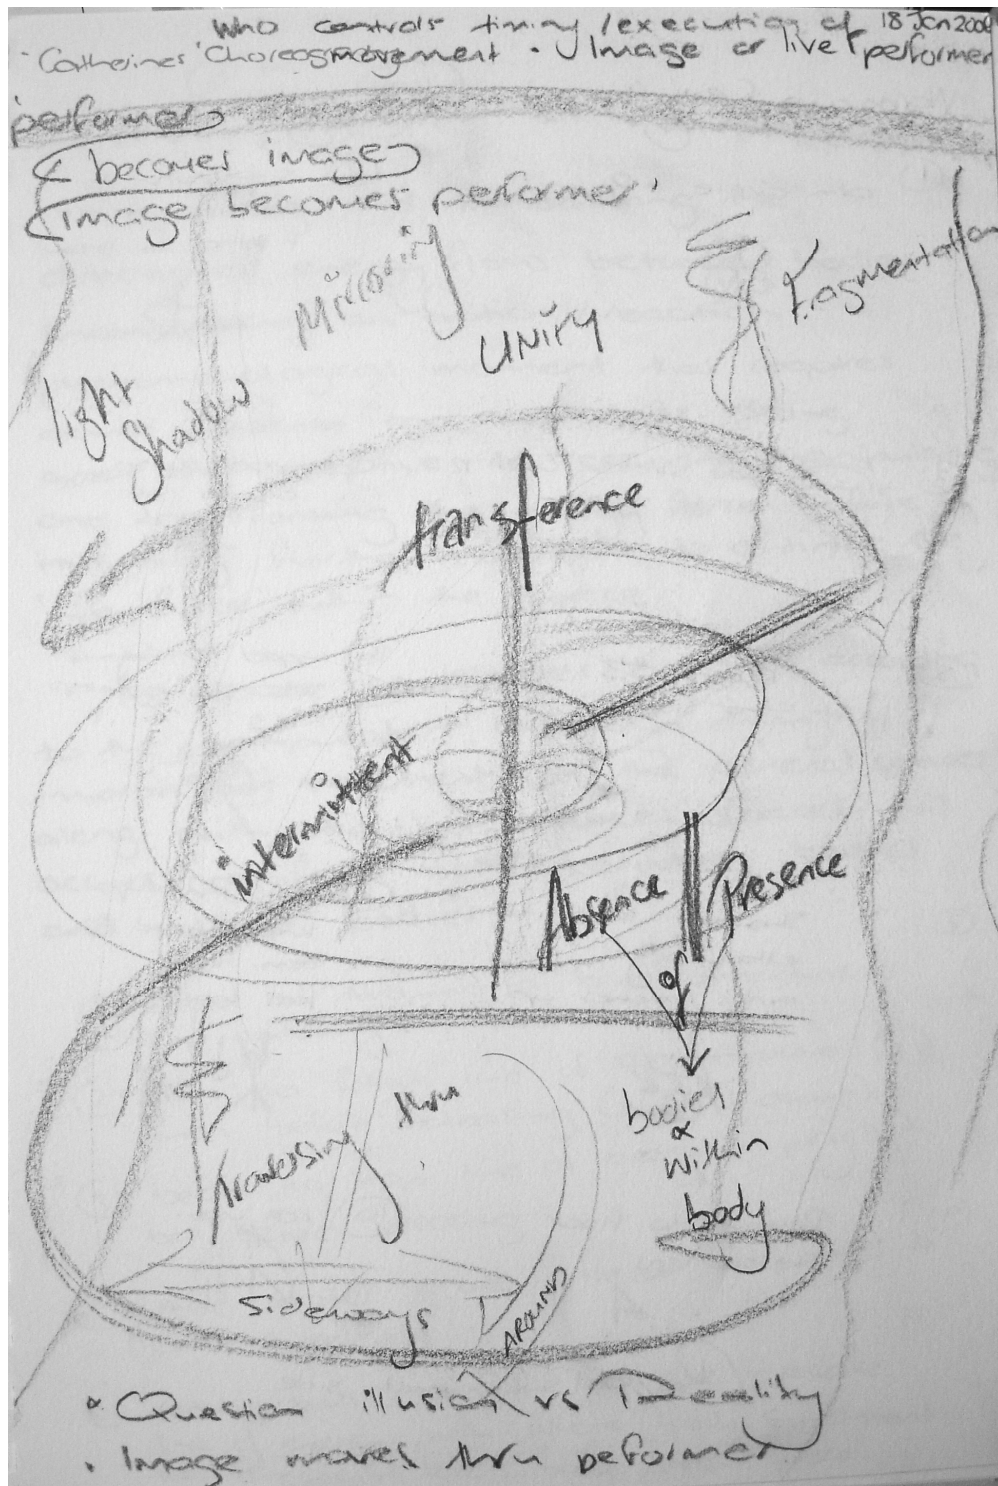 Who controls timing / execution of 18 Jan
Catherine's Choreog movement · Image or live performer
'performer
becomes image
Image becomes performer'
Mirroring
Unity
fragmentation
light
Shadow
transference
intermittent
Absence Presence
of
bodies
within
body
traversing thru
Sideways
AROUND
Question illusion vs Reality
· Image moves thru peformer